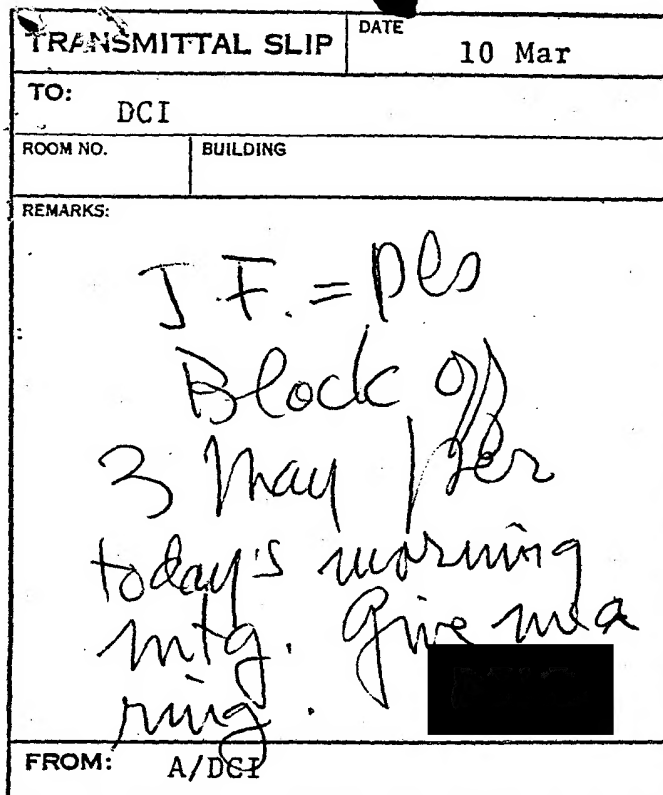 TRANSMITTAL SLIP
DATE
10 Mar
TO:
DCI
ROOM NO.
BUILDING
REMARKS:
J.F. = pls
Block off
3 May per
today's morning
mtg. Give me a
ring.
FROM: A/DCI